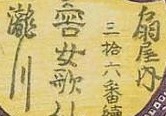 扇屋内
三拾六番續
女歌
瀧川